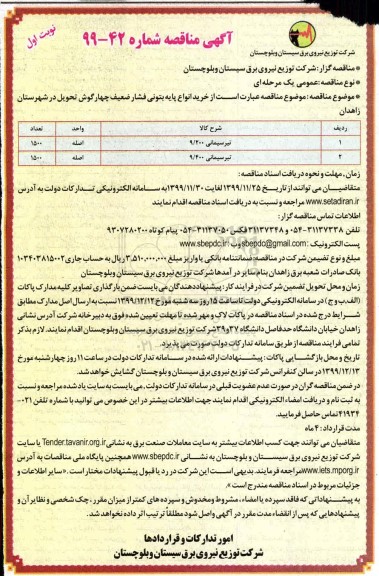 نوبت اول
آگهی مناقصه شماره ۴۲-۹۹
شرکت توزیع نیروی برق سیستان وبلوچستان
* مناقصه گزار: شرکت توزیع نیروی برق سیستان وبلوچستان
* نوع مناقصه: عمومی یک مرحله ای
* موضوع مناقصه: موضوع مناقصه عبارت است از خرید انواع پایه بتونی فشار ضعیف چهارگوش تحویل در شهرستان
زاهدان
ردیف شرح کالا واحد تعداد
۱ تیرسیمانی ۹/۲۰۰ اصله ۱۵۰۰
۲ تیرسیمانی ۹/۴۰۰ اصله ۱۵۰۰
زمان، مهلت و نحوه دریافت اسناد مناقصه:
متقاضیـان می توانند از تاریخ ۱۳۹۹/۱۱/۲۵ لغایت ۱۳۹۹/۱۱/۳۰ به سامانه الکترونیکی تدارکات دولت به آدرس
www.setadiran.ir مراجعه و نسبت به دریافت اسناد مناقصه اقدام نمایند
اطلاعات تماس مناقصه گزار:
تلفن ۳۱۱۳۷۳۳۸-۰۵۴ و ۳۱۱۳۷۳۴۸ فکس ۳۱۱۳۷۰۵۰-۰۵۴ پیام کوتاه ۹۳۰۷۲۸۰۲۰۰
پست الکترونیک: sbepdc@gmail.com وب: www.sbepdc.ir
مبلغ و نوع تضیمن شرکت در مناقصه: ضمانتنامه بانکی یا واریز مبلغ ۳,۵۱۰,۰۰۰,۰۰۰ ریال به حساب جاری ۰۱۰۳۴۰۳۸۱۵۰۰۲
بانک صادرات شعبه برق زاهدان بنام سایر درآمدها شرکت توزیع نیروی برق سیستان وبلوچستان
زمان و محل تحویل تضمین شرکت در فرایند کار: پیشنهاددهندگان می بایست ضمن بارگذاری تصاویر کلیه مدارک پاکات
(الف،ب و ج) در سامانه الکترونیکی دولت تا ساعت ۱۵ روز سه شنبه مورخ ۱۳۹۹/۱۲/۱۲ نسبت به ارسال اصل مدارک مطابق
شرایط درج شده در اسناد مناقصه در پاکات لاک و مهر شده تا مهلت تعیین شده فوق به دبیرخانه شرکت آدرس نشانی
زاهدان خیابان دانشگاه حدفاصل دانشگاه ۳۷ و ۳۹ شرکت توزیع نیروی برق سیستان وبلوچستان اقدام نمایند. لازم بذکر
تمامی فرایند مناقصه از طریق سامانه تدارکات دولت صورت می پذیرد.
تاریخ و محل بازگشایی پاکات: پیشنهـادات ارائه شده در سامانه تدارکات دولت در ساعت ۱۱ روز چهارشنبه مورخ
۱۳۹۹/۱۲/۱۳ در سالن کنفرانس شرکت توزیع نیروی برق سیستان وبلوچستان گشایش خواهد شد.
در ضمن مناقصه گران در صورت عدم عضویت قبلی در سامانه تدارکات دولت، می بایست به سایت یاد شده مراجعه و نسبت
به ثبت نام و دریافت امضاء الکترونیکی اقدام نمایند جهت اطلاعات بیشتر در این خصوص می توانید با شماره تلفن ۰۲۱-
۴۱۹۳۴ تماس حاصل فرمایید.
مدت قرارداد: ۴ ماه
متقاضیان می توانند جهت کسب اطلاعات بیشتر به سایت معاملات صنعت برق به نشانی Tender.tavanir.org.ir یا سایت
شرکت توزیع نیروی برق سیستان و بلوچستان به نشانی www.sbepdc.ir همچنین پایگاه ملی مناقصات به آدرس
www.iets.mporg.ir مراجعه فرمایند. بدیهی است این شرکت در رد یا قبول پیشنهادات مختار است. «سایر اطلاعات و
جزئیات مربوط در اسناد مناقصه مندرج است».
به پیشنهـاداتی که فاقد سپرده یا امضاء، مشروط و مخدوش و سپرده های کمتر از میزان مقرر، چک شخصی و نظایر آن و
پیشنهادهایی که پس از انقضاء مدت مقرر در آگهی واصل شود مطلقاً ترتیب اثر داده نخواهد شد.
امور تدارکات و قراردادها
شرکت توزیع نیروی برق سیستان وبلوچستان